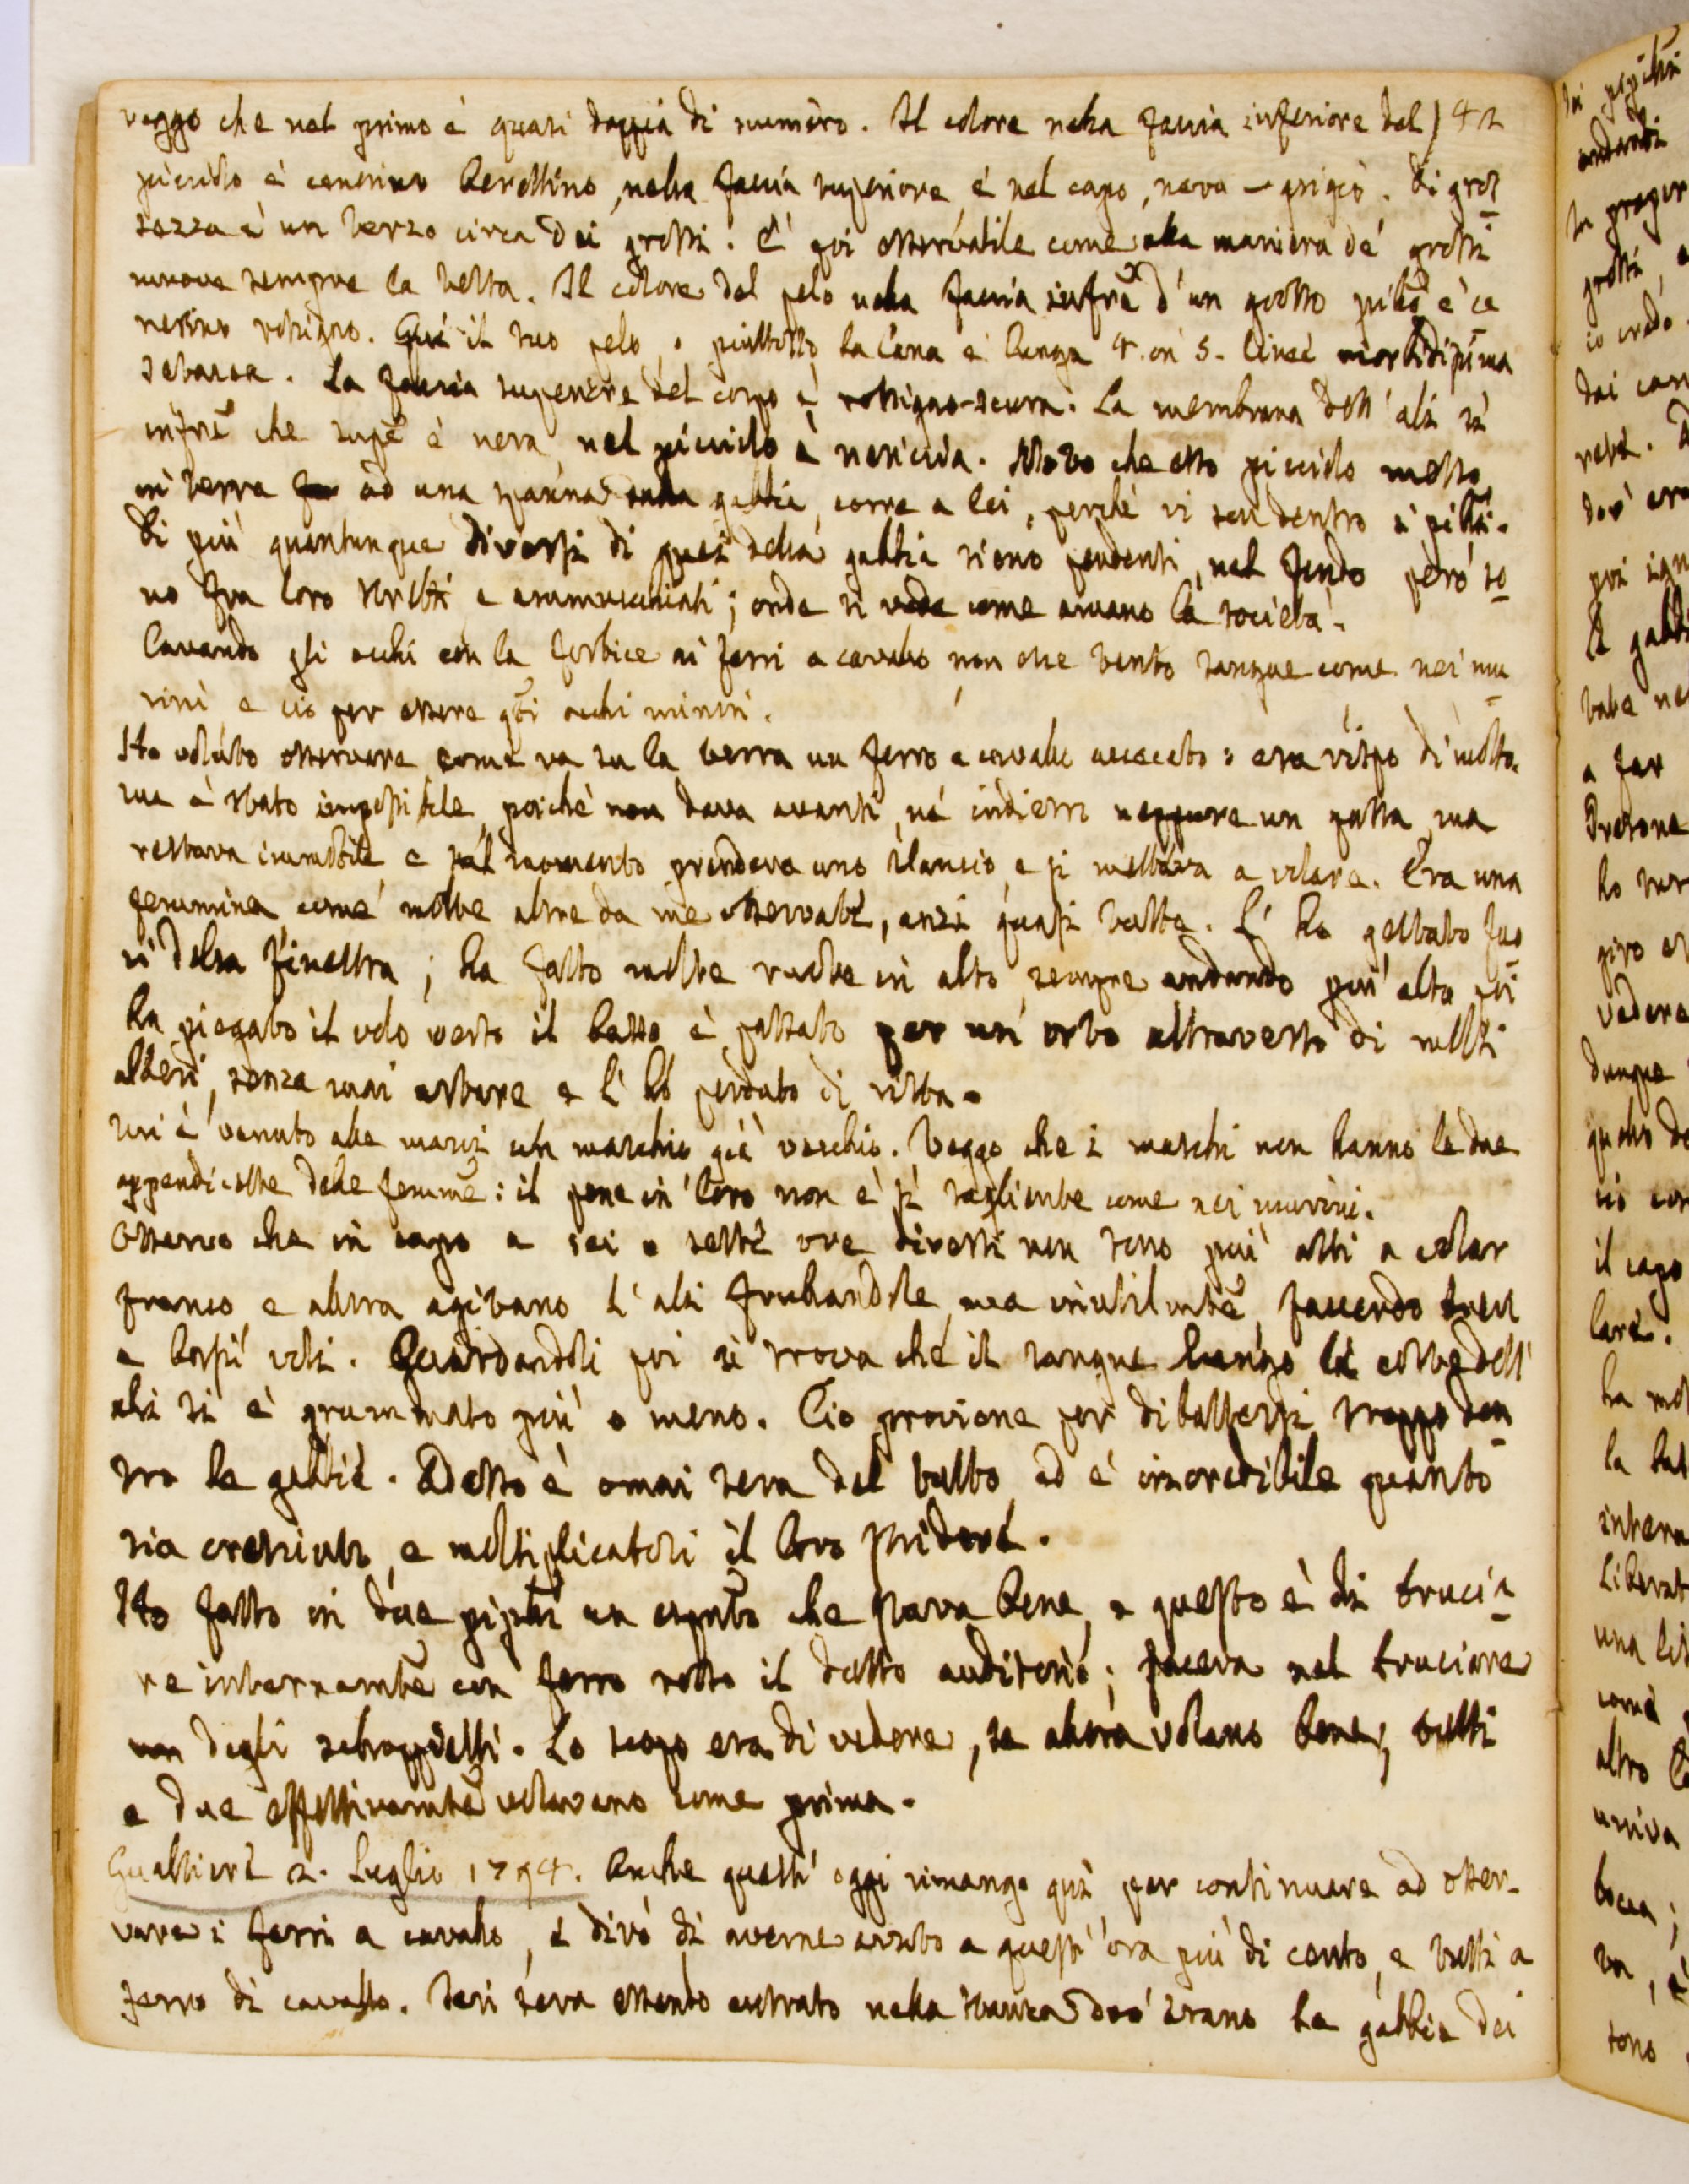 veggo che nel primo è quasi doppia di numero. Il colore nella faccia inferiore del 42
piccolo è cenerino berettino, nella faccia superiore, e nel capo, nero-grigio. Di gros
sezza è un terzo circa dei grossi. È poi osservabile come alla maniera de' grossi
muove sempre la testa. Il colore del pelo nella faccia infre d'un grosso è ce
nerino rossigno. Qui il suo pelo, o piuttosto la lana è lunga 4. in 5. linee morbidissima
. La faccia superiore del corpo è rossigno-scura. La membrana dell'ali sì
infre che supe è nera nel piccolo è nericcia. Noto che esso piccolo messo
in terra ad una spanna dalla gabbia, corre a lei, perchè vi son dentro i
Di più quantunque diversi di quei della gabbia sieno pendenti, nel fondo però so
no fra loro stretti e ammucchiati; onde si vede come amano la società.
Cavando gli occhi con la forbice ai ferri a cavallo non esce tanto sangue come nei mu
rini e ciò per essere qsti occhi minori.
Ho voluto osservare come va su la terra un ferro a cavallo acecato: era vispo di molto
ma è stato impossibile, poichè non dava avanti, nè indietro neppure un passo, ma
restava immobile e sul momento prendeva uno slancio, e si metteva a volare. Era una
femmina come molte altre da me osservate, anzi quasi tutte. L'ho gettato fuo
ri della finestra; ha fatto molte ruote in alto, sempre andando più alto poi
ha piegato il volo verso il basso è passato per un orto attraverso di molti
alberi, senza mai urtare e l'ho perduto di vista.
Mi è venuto alle mani un maschio già vecchio. Veggo che i maschi non hanno le due
appendicette delle femme: il pene in loro non è sì sagliente come nei murini.
Osservo che in capo a sei o sette ore diversi non sono più atti a volar
franco, e allora agitano l'ali frullandole, ma inutilmte, facendo brevi
e bassi voli. Guardandoli poi si trova che il sangue lungo le coste dell'
ali si è grummato più o meno. Ciò proviene per dibattersi troppo den
tro le gabbie. Adesso è omai sera del tutto ed è incredibile quanto
sia cresciuto, e moltiplicatosi il loro stridore.
Ho fatto in due pipstri un espmto che stava bene, e questo è di brucia
re internamte con ferro rosso il dutto auditorio; faceva nel bruciare
un degli scoppietti. Lo scopo era di vedere, se allora volano bene, tutti
e due effettivamte volavano come prima.
Gualtieri 2. Luglio 1794. Anche quest'oggi rimango quì per continuare ad osser-
vare i ferri a cavallo, e dirò di averne avuto a quest'ora più di cento, e tutti a
ferro di cavallo. Ieri sera essendo entrato nella stanza dov'erano le gabbie dei